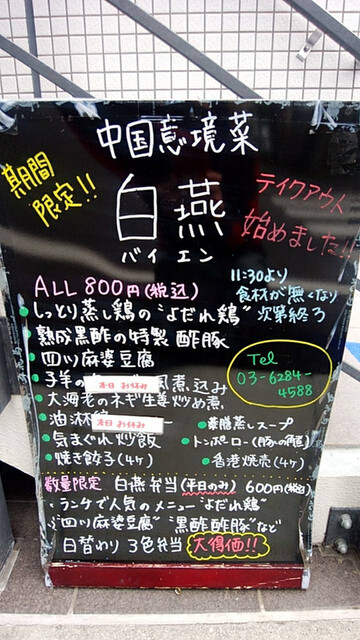 中国意境菜
期間
限定!!
白燕
バイエン
テイクアウト
始めました!!
ALL 800円(税込)
11:30より
食材が無くなり
次第終了
しっとり蒸し鶏の"よだれ鶏"
熟成黒酢の特製 酢豚
四川麻婆豆腐
Tel
03-6284-
4588
子羊の 本日 お休み 風煮込み
大海老のネギ生姜炒め煮
油淋 本日 お休み
薬膳蒸しスープ
気まぐれ炒飯
トンポーロー(豚の角煮)
焼き餃子(4ヶ)
香港焼売(4ヶ)
数量限定 白燕弁当(平日のみ) 600円(税込)
ランチで人気のメニュー"よだれ鶏"
"四川麻婆豆腐" "黒酢酢豚"など
日替わり 3色弁当 大得価!!